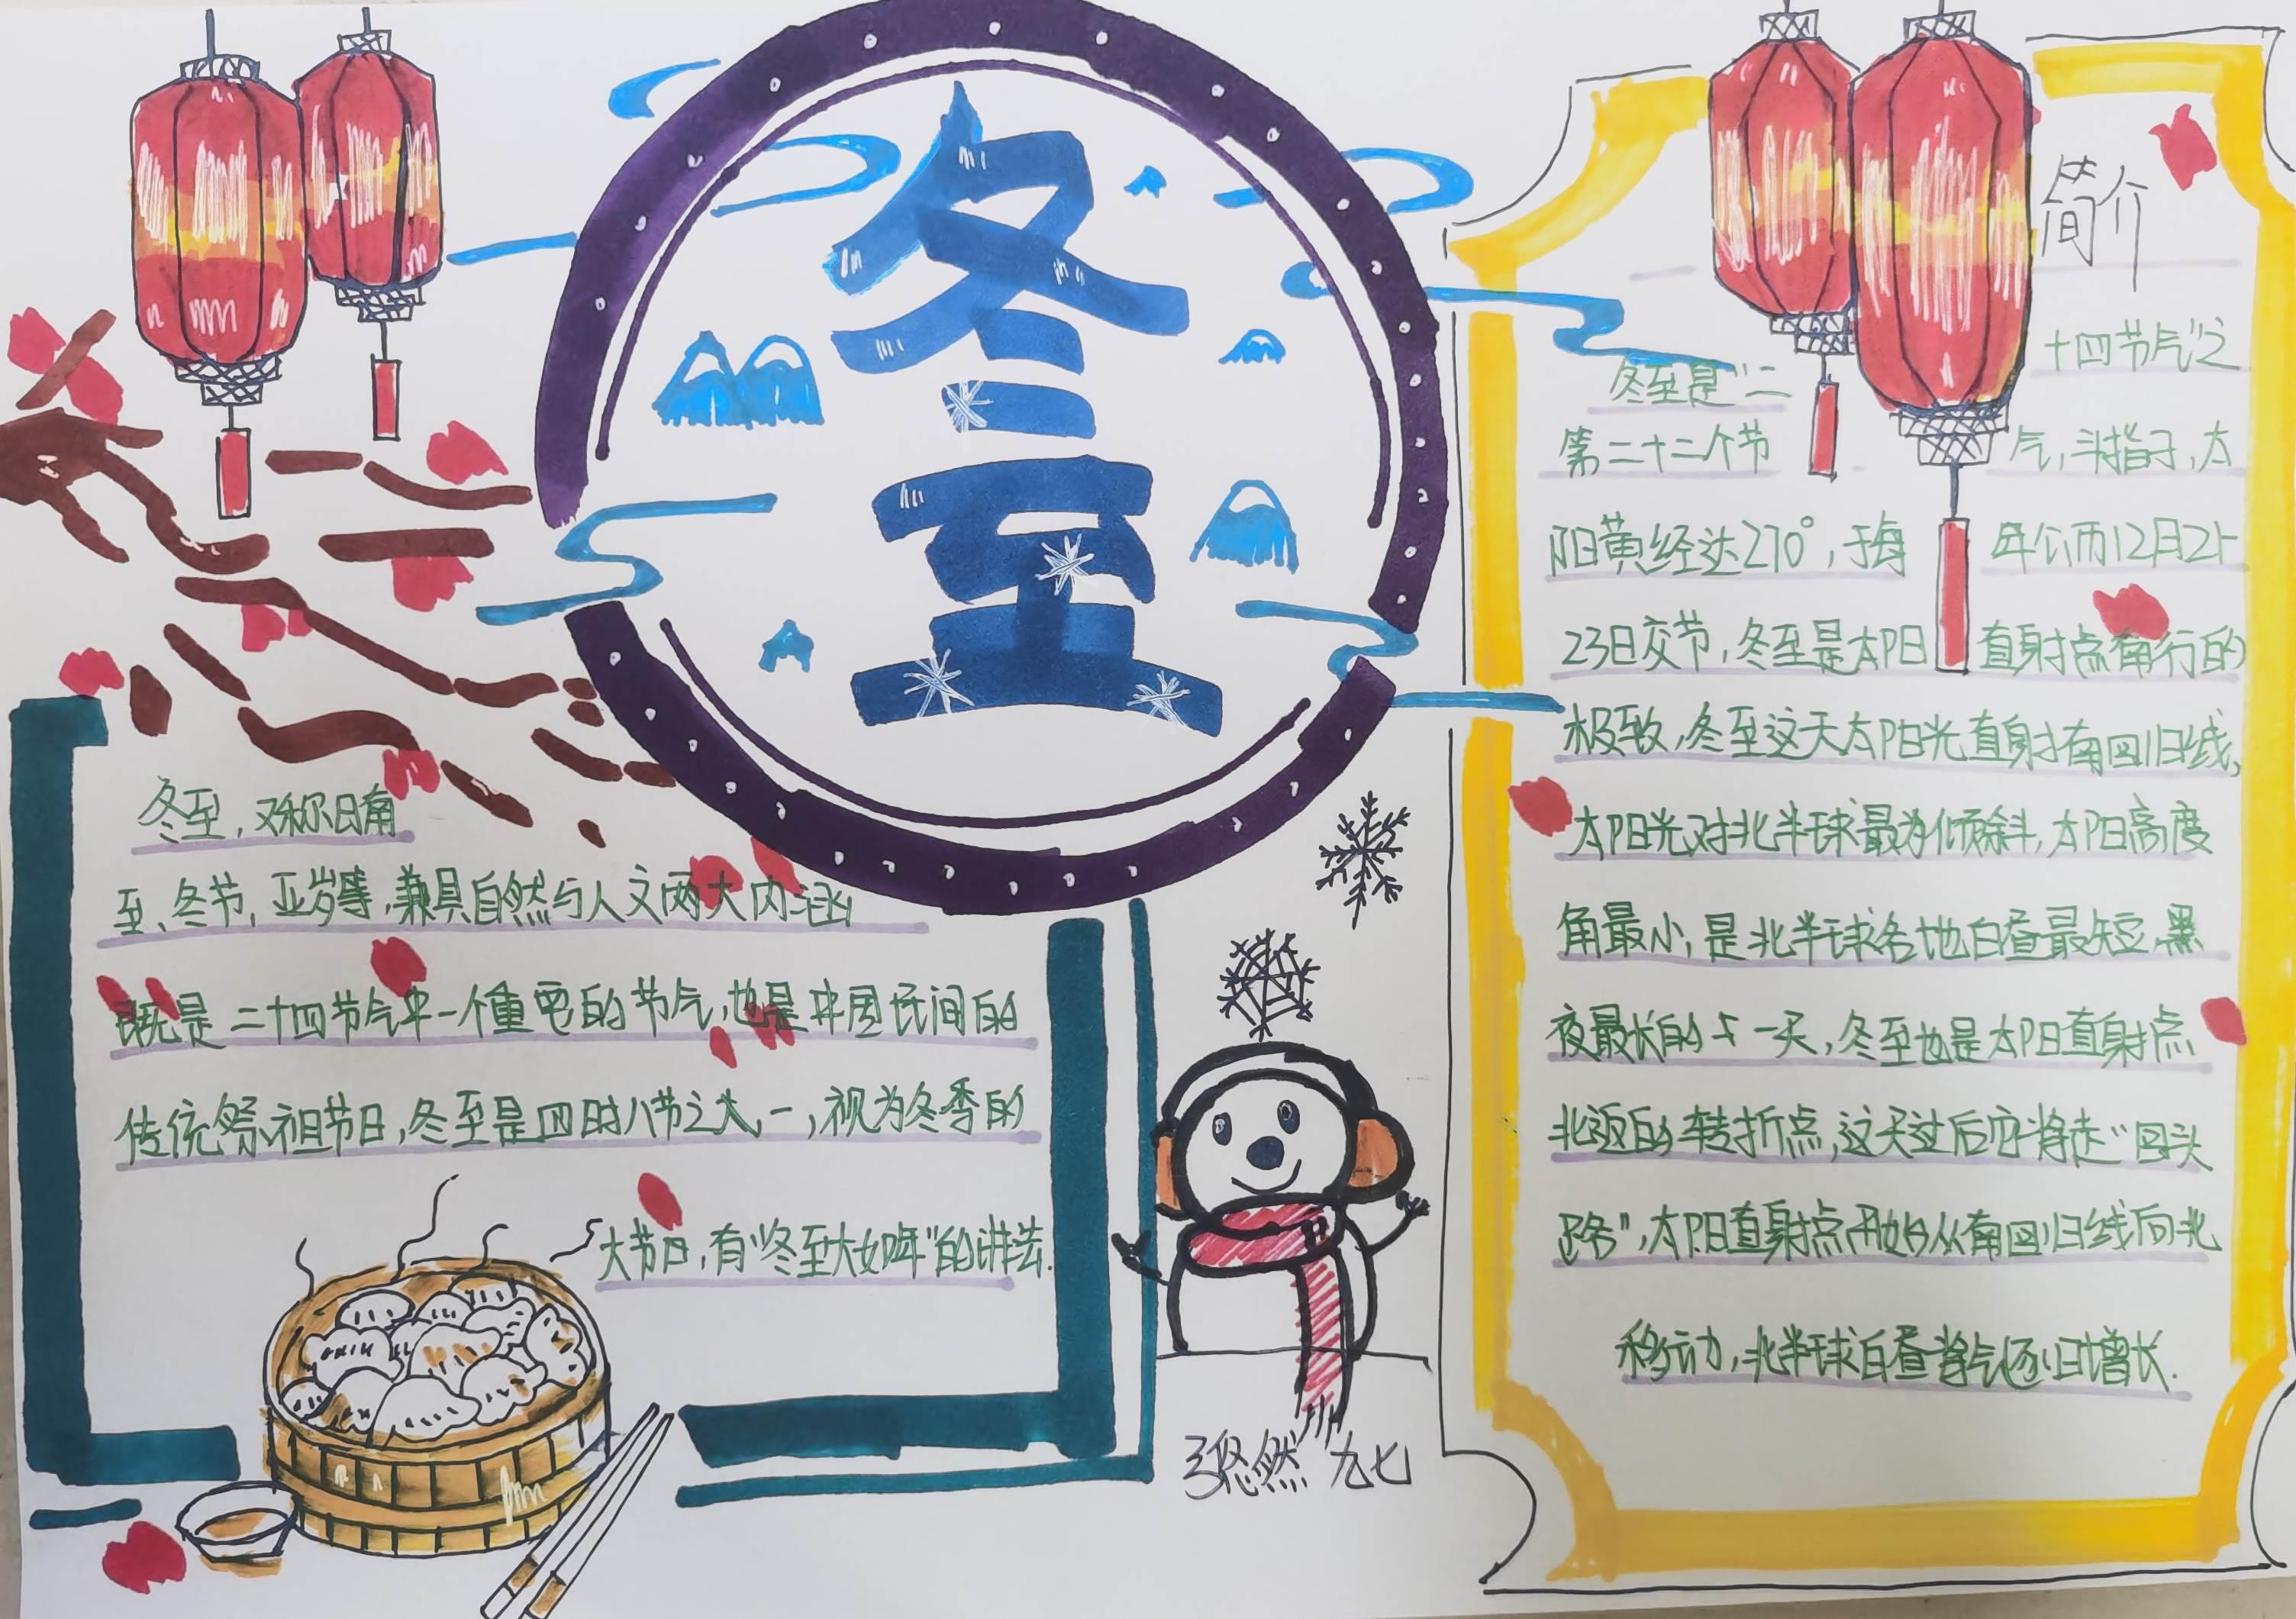 冬至
冬至，又称日南
至、冬节、亚岁等，兼具自然与人文两大内涵，
既是二十四节气中一个重要的节气，也是中国民间的
传统祭祖节日，冬至是四时八节之一，视为冬季的
大节日，有“冬至大如年”的讲法.
悠然 九七
简介
冬至是“二十四节气”之
第二十二个节气，斗指子，太
阳黄经达270°，于每年公历12月21-
23日交节，冬至是太阳直射点南行的
极致，冬至这天太阳光直射南回归线，
太阳光对北半球最为倾斜，太阳高度
角最小，是北半球各地白昼最短、黑
夜最长的一天，冬至也是太阳直射点
北返的转折点，这天过后它将走“回头
路”，太阳直射点开始从南回归线向北
移动，北半球白昼将逐日增长.